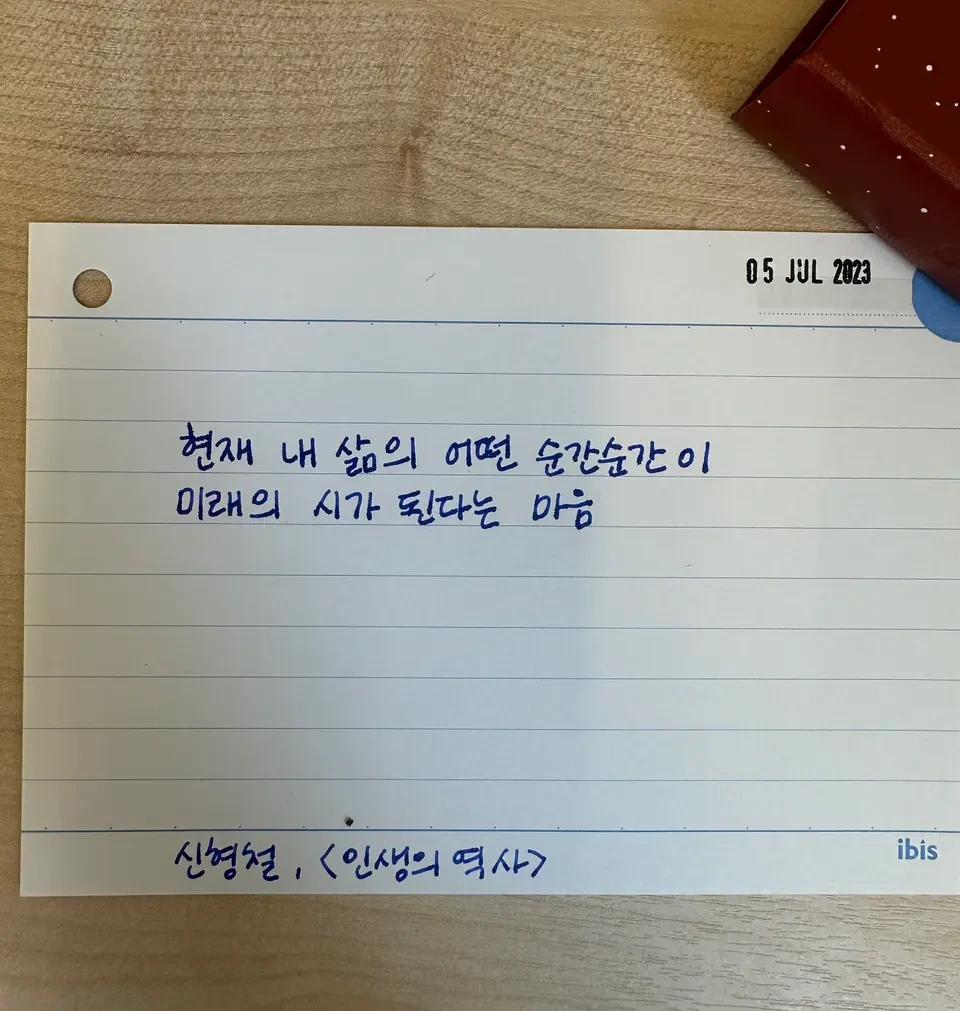 05 JUL 2023
현재 내 삶의 어떤 순간순간이
미래의 시가 된다는 마음
신형철, <인생의 역사>
ibis